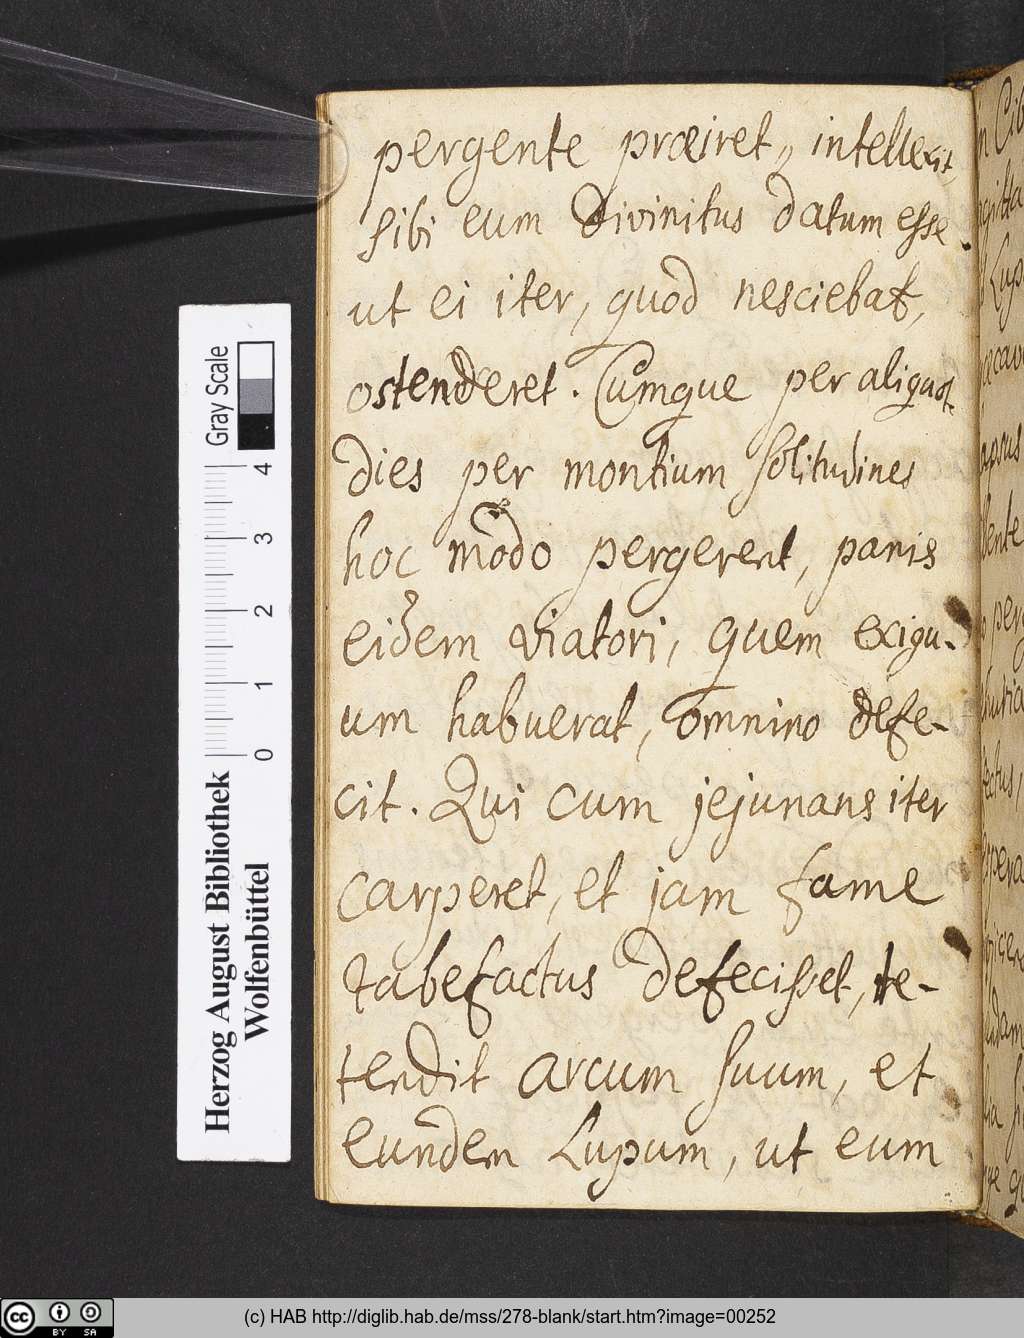 pergente præiret, intellexit
sibi eum Divinitus datum esse
ut ei iter, quod nesciebat,
ostenderet. Cumque per aliquot
dies per montium solitudines
hoc modo pergerent, panis
eidem viatori, quem exigu-
um habuerat, omnino defe-
cit. Qui cum jejunans iter
carperet, et jam fame
tabefactus defecisset, te-
tendit arcum suum, et
eundem Lupum, ut eum
Gray Scale
0 1 2 3 4
Herzog August Bibliothek
Wolfenbüttel
cc BY SA
(c) HAB http://diglib.hab.de/mss/278-blank/start.htm?image=00252